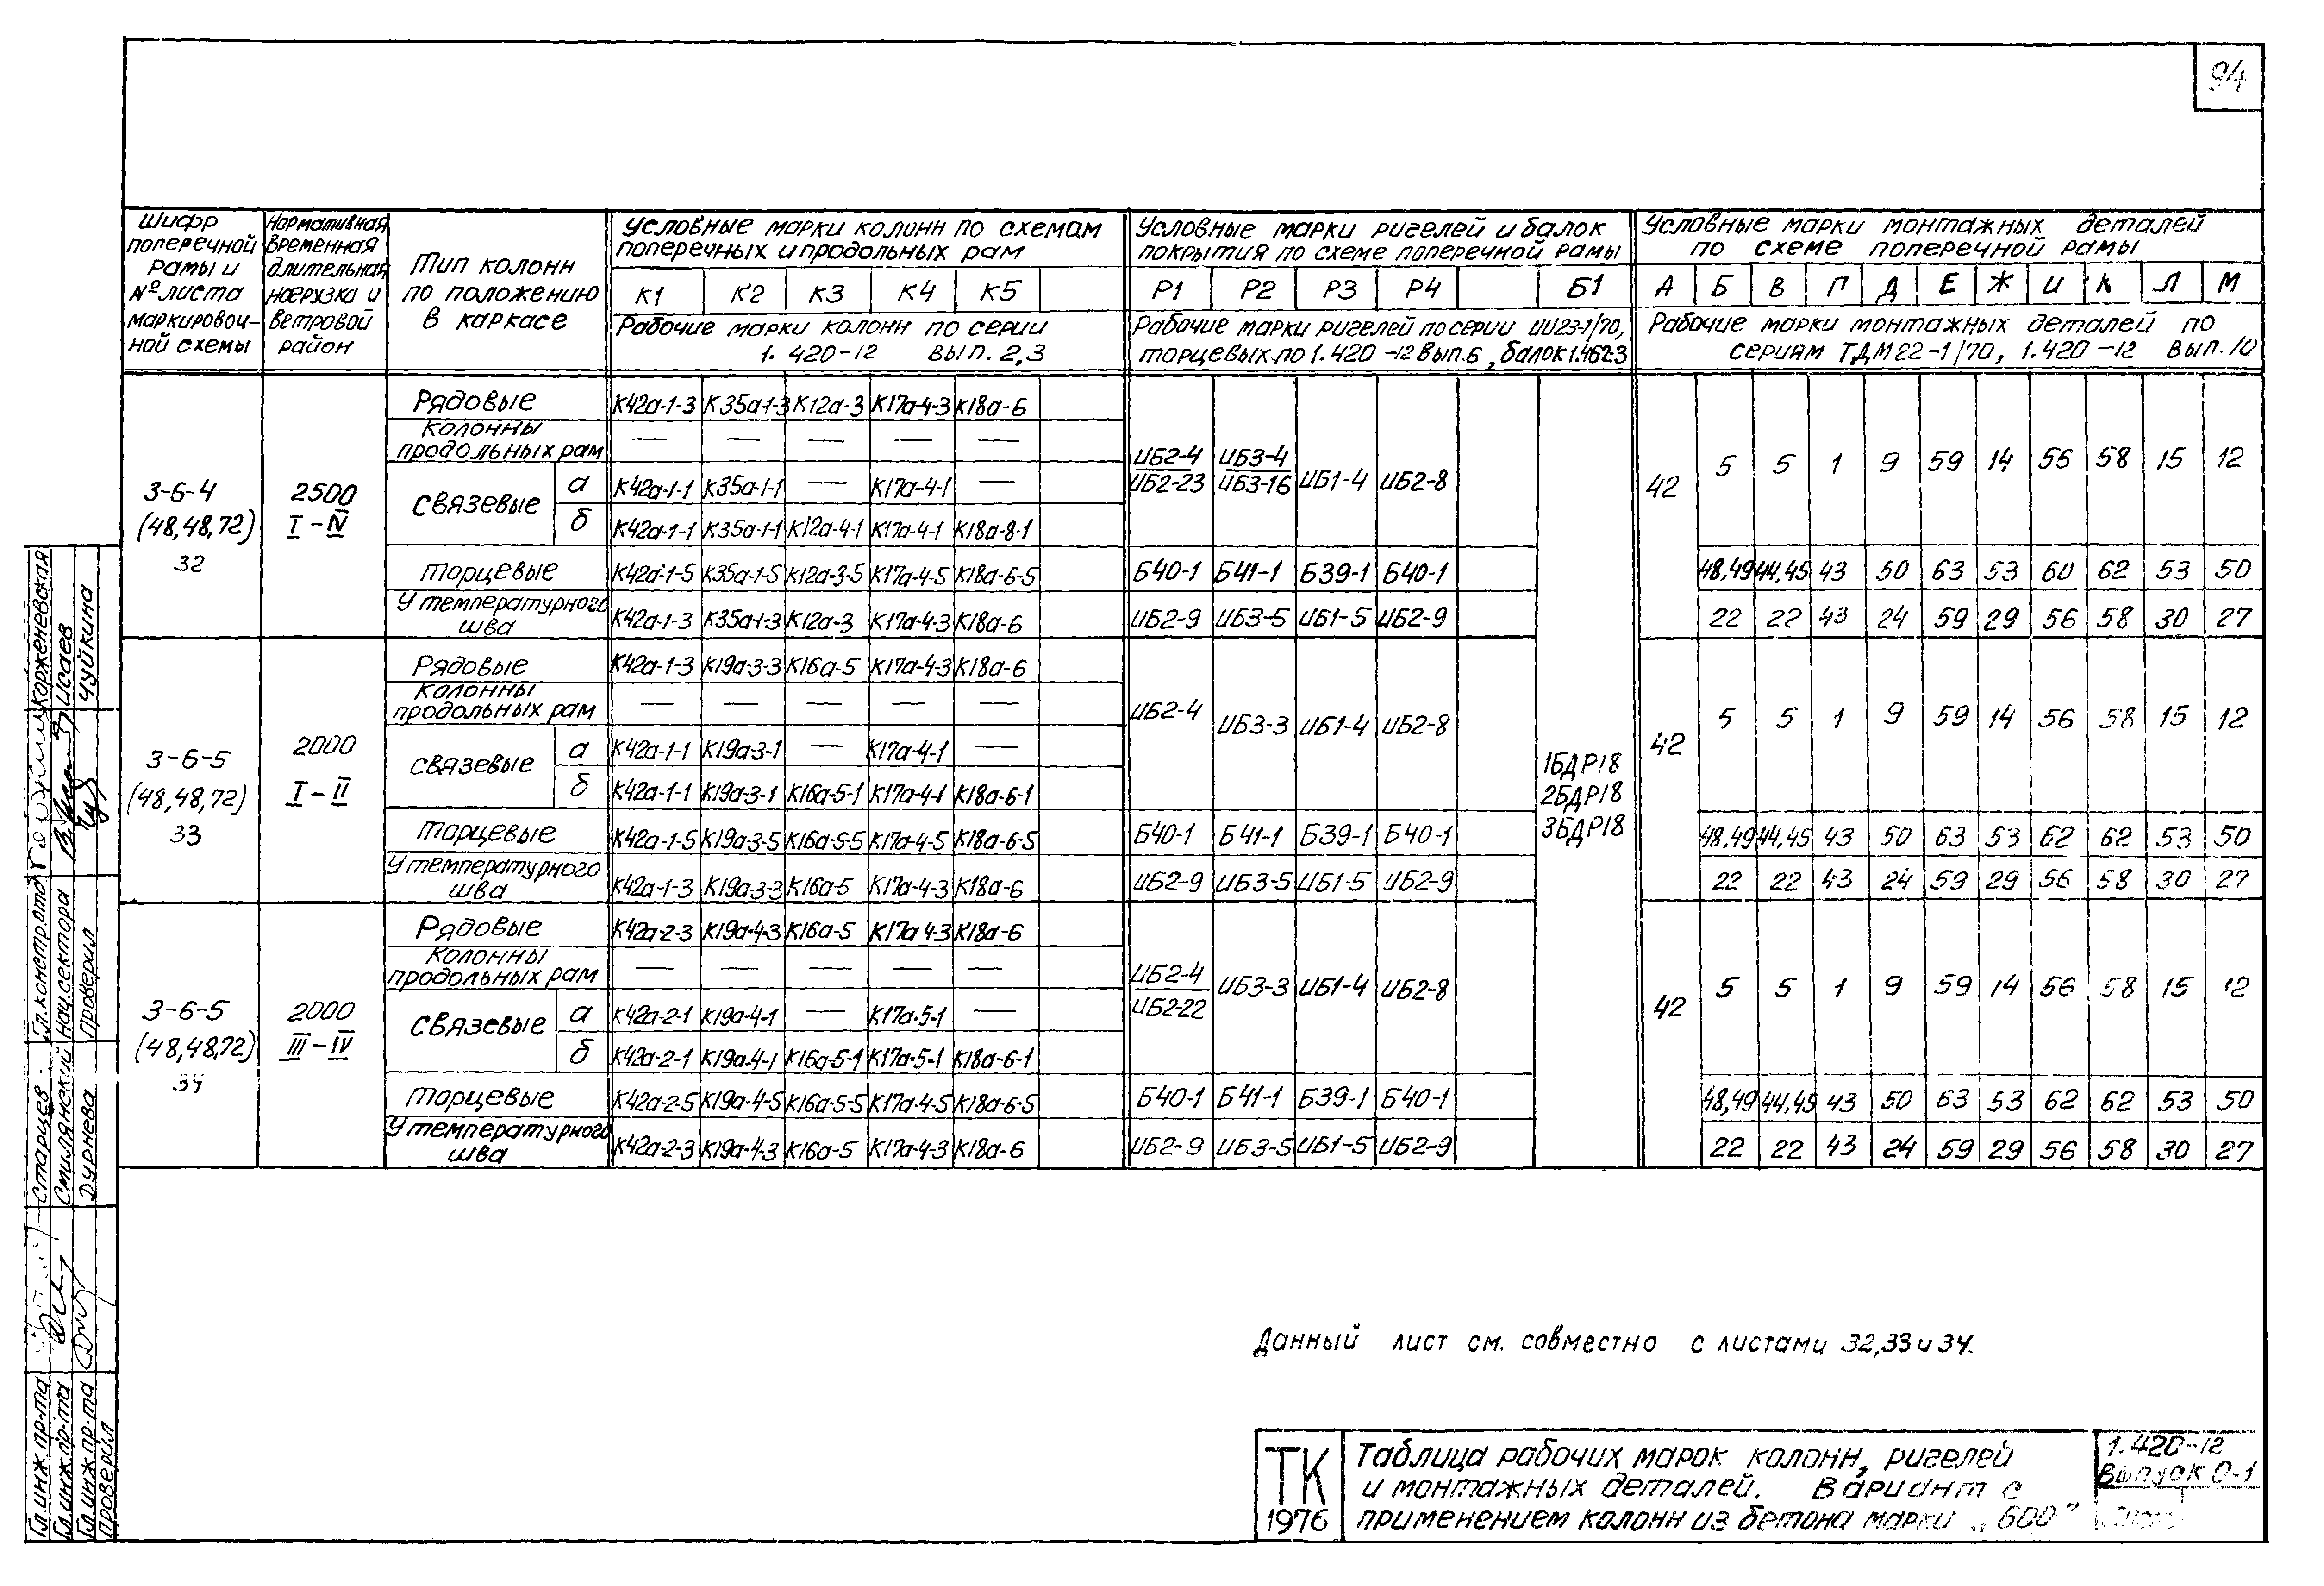 94
Шифр поперечной рамы и № листа маркировочной схемы
Нормативная временная длительная нагрузка и ветровой район
Тип колонн по положению в каркасе
Условные марки колонн по схемам поперечных и продольных рам
К1 К2 К3 К4 К5
Рабочие марки колонн по серии 1.420-12 вып. 2,3
Условные марки ригелей и балок покрытия по схеме поперечной рамы
Р1 Р2 Р3 Р4 Б1
Рабочие марки ригелей по серии ИИ23-1/70, торцевых по 1.420-12 Вып.6, балок 1.462-3
Условные марки монтажных деталей по схеме поперечной рамы
А Б В П Д Е Ж И К Л М
Рабочие марки монтажных деталей по сериям ТДМ22-1/70, 1.420-12 Вып.10
3-6-4 (48,48,72) 32
2500 I-IV
Рядовые К42а-1-3 К35а-1-3 К12а-3 К17а-4-3 К18а-6
Колонны продольных рам — — — — —
Связевые а К42а-1-1 К35а-1-1 — К17а-4-1 —
б К42а-1-1 К35а-1-1 К12а-4-1 К17а-4-1 К18а-8-1
ИБ2-4/ИБ2-23 ИБ3-4/ИБ3-16 ИБ1-4 ИБ2-8
42 5 5 1 9 59 14 56 58 15 12
Торцевые К42а-1-5 К35а-1-5 К12а-3-5 К17а-4-5 К18а-6-5 Б40-1 Б41-1 Б39-1 Б40-1 48,49 44,45 43 50 63 53 60 62 53 50
У температурного шва К42а-1-3 К35а-1-3 К12а-3 К17а-4-3 К18а-6 ИБ2-9 ИБ3-5 ИБ1-5 ИБ2-9 22 22 43 24 59 29 56 58 30 27
3-6-5 (48,48,72) 33
2000 I-II
Рядовые К42а-1-3 К19а-3-3 К16а-5 К17а-4-3 К18а-6
Колонны продольных рам — — — — —
Связевые а К42а-1-1 К19а-3-1 — К17а-4-1 —
б К42а-1-1 К19а-3-1 К16а-5-1 К17а-4-1 К18а-6-1
ИБ2-4 ИБ3-3 ИБ1-4 ИБ2-8
1БДР18
2БДР18
3БДР18
42 5 5 1 9 59 14 56 58 15 12
Торцевые К42а-1-5 К19а-3-5 К16а-5-5 К17а-4-5 К18а-6-5 Б40-1 Б41-1 Б39-1 Б40-1 48,49 44,45 43 50 63 53 62 62 53 50
У температурного шва К42а-1-3 К19а-3-3 К16а-5 К17а-4-3 К18а-6 ИБ2-9 ИБ3-5 ИБ1-5 ИБ2-9 22 22 43 24 59 29 56 58 30 27
3-6-5 (48,48,72) 34
2000 III-IV
Рядовые К42а-2-3 К19а-4-3 К16а-5 К17а 4-3 К18а-6
Колонны продольных рам — — — — —
Связевые а К42а-2-1 К19а-4-1 — К17а-5-1 —
б К42а-2-1 К19а-4-1 К16а-5-1 К17а-5-1 К18а-6-1
ИБ2-4/ИБ2-22 ИБ3-3 ИБ1-4 ИБ2-8
42 5 5 1 9 59 14 56 58 15 12
Торцевые К42а-2-5 К19а-4-5 К16а-5-5 К17а-4-5 К18а-6-5 Б40-1 Б41-1 Б39-1 Б40-1 48,49 44,45 43 50 63 53 62 62 53 50
У температурного шва К42а-2-3 К19а-4-3 К16а-5 К17а-4-3 К18а-6 ИБ2-9 ИБ3-5 ИБ1-5 ИБ2-9 22 22 43 24 59 29 56 58 30 27
Данный лист см. совместно с листами 32,33 и 34.
ТК
1976
Таблица рабочих марок колонн, ригелей
и монтажных деталей. Вариант с
применением колонн из бетона марки „600"
1.420-12
Выпуск 0-1
Гл. инж. пр-та Старцев
Гл. инж. пр-та Смилянский
Гл. инж. пр-та Дурнева
Проверил
Гл. констр. отд Корженевская
Нач. сектора Исаев
Проверил Чуйкина